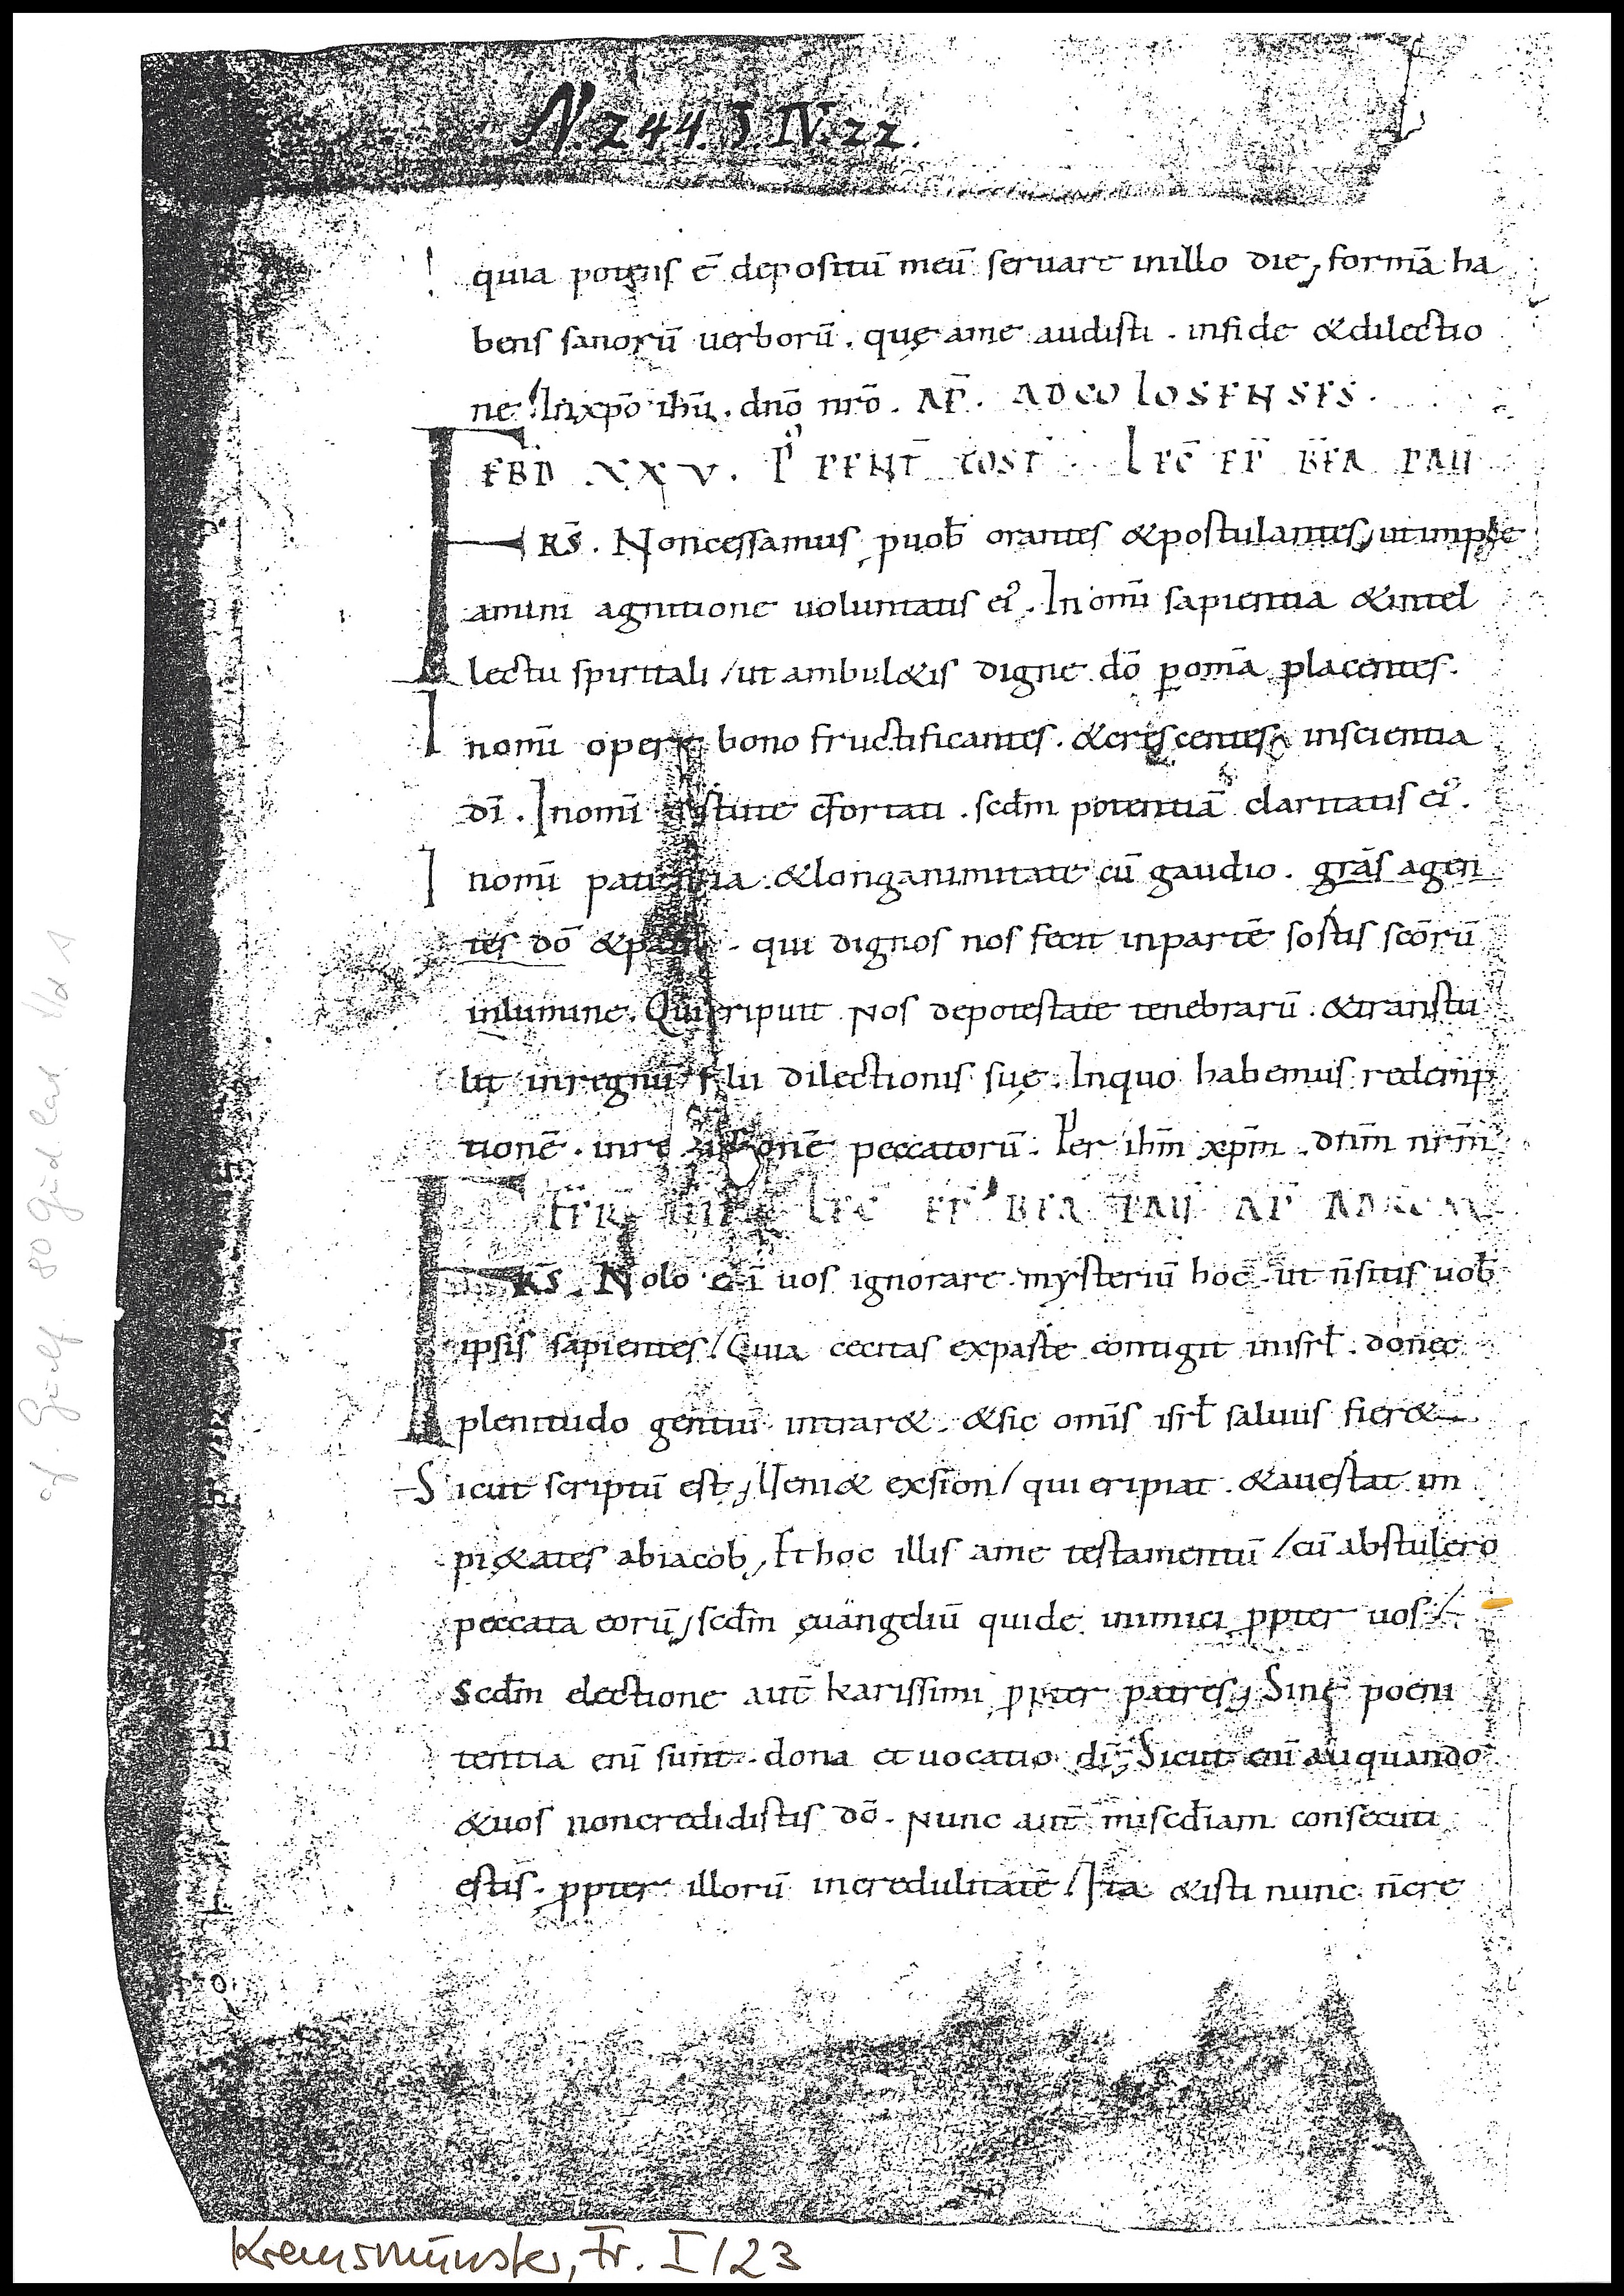 N. 244. S IV. 22.
quia potens ē depositū meū seruare inillo die, formā ha
bens sanorū uerborū. quę ame audisti. infide &dilectio
ne. Inxp̄o ih̄u. dn̄o nr̄o. AP̄. ADCOLOSENSES.
EBD XXV. P' PENT̄ COST. LEC̄ EP̄ BEA PAU
FRS̄. Noncessamus puob̄ orantes &postulantes, utimple
amini agnitione uoluntatis ei'. Inom̄i sapientia &intel
lectu spiritali / ut ambul&is digne dō p̱om̄a placentes.
Inom̄i opere bono fructificantes. &crescentes inscientia
dī. Inom̄i uirtute c̄fortati. scd̄m potentiā claritatis ei'.
Inom̄i patientia. &longanimitate cū gaudio. grās agen
tes dō &patri. qui dignos nos fecit inpartē sortis sc̄orū
inlumine. Qui eripuit Nos depotestate tenebrarū. &transtu
lit inregnū filii dilectionis suę. Inquo habemus redemp
tionē. inre onē peccatorū. Per ih̄m xp̄m. dn̄m nr̄m
LEC̄ EP' BEA PAU AP̄ AD
FRS̄. Nolo enī uos ignorare mysteriū hoc. ut n̄sitis uob̄
ipsis sapientes / Quia cecitas exparte contigit inisrł. donec
plenitudo gentiū intrar&. &sic om̄is isrł saluus fier&
Sicut scriptū est, Ueni& exsion / qui eripiat. &auertat im
pi&ates abiacob, Et hoc illis ame testamentū / cū abstulero
peccata eorū, scd̄m euangeliū quide inimici p̱pter uos /
Scd̄m electione aut̄ karissimi p̱pter patres, Sine poeni
tentia enī sunt. dona et uocatio dī, Sicut enī aliquando
&uos noncredidistis dō. Nunc aut̄ misc̄diam consecuti
estis. p̱pter illorū incredulitatē / Ita &isti nunc n̄cre
cf. Guelf. 80 Gud. lat.
Kremsmünster, Fr. I/23